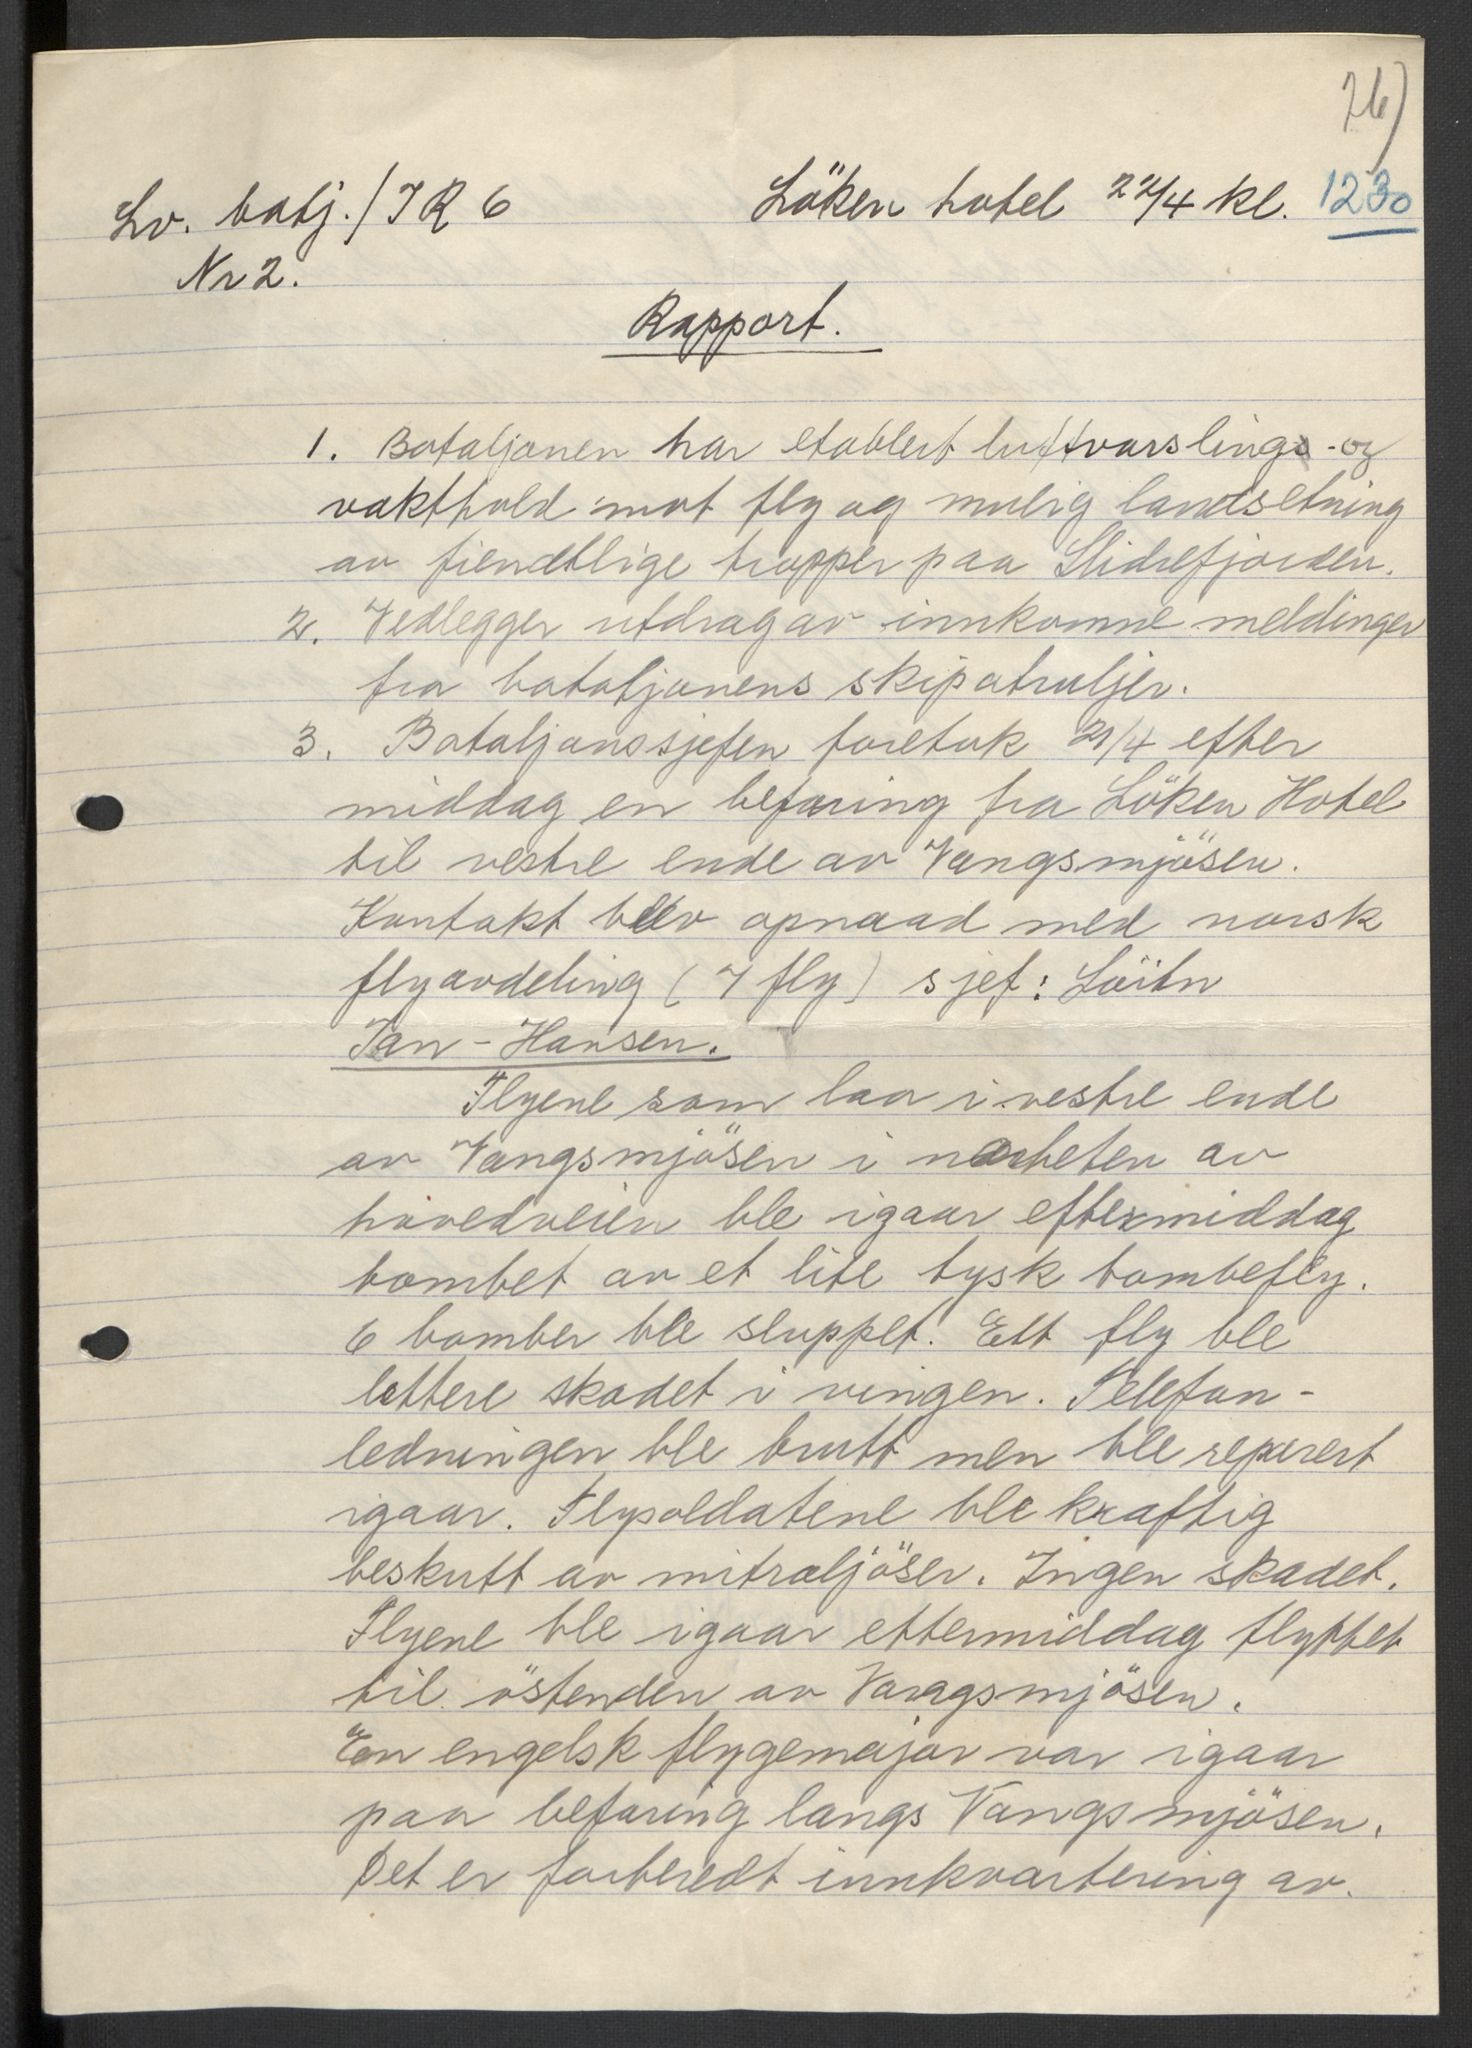 26)
Lv. batj./IR 6 Löken hotel 22/4 kl. 1230
Nr 2.
Rapport.
1. Bataljonen har etablert luftvarslings- og
vakthold mot fly og mulig landsetning
av fiendtlige tropper paa Slidrefjorden.
2. Vedlegger utdrag av innkomne meldinger
fra bataljonens skipatruljer.
3. Bataljonssjefen foretok 21/4 efter
middag en befaring fra Löken Hotel
til vestre ende av Vangsmjösen.
Kontakt blev opnaad med norsk
flyavdeling (7 fly) sjef: Löitn
Jan-Hansen.
Flyene som laa i vestre ende
av Vangsmjösen i nærheten av
hovedveien ble igaar eftermiddag
bombet av et lite tysk bombefly.
6 bomber ble sluppet. Ett fly ble
lettere skadet i vingen. Telefon-
ledningen ble brutt men ble reparert
igaar. Flysoldatene ble kraftig
beskutt av mitraljöser. Ingen skadet.
Flyene ble igaar ettermiddag flyttet
til östenden av Vangsmjösen.
En engelsk flygemajor var igaar
paa befaring langs Vangsmjösen.
Det er forberedt innkvartering av